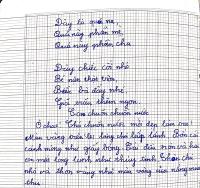 Đây là quà mẹ,
Quà này phần mẹ,
Quà này phần cha
Đây chiếc cối nhỏ
Bé nấu
Biếu bà đấy nhé,
têm ngon.
Con chuồn chuồn nước
Ôi chao! Chú chuồn chuồn nước mới đẹp làm sao!
Màu vàng trên lưng chú lấp lánh. Bốn cái
cánh mỏng như giấy bóng. Cái đầu tròn và hai
con mắt long lanh như thủy tinh. Thân chú
nhỏ và thon vàng như màu vàng của nắng mùa
thu